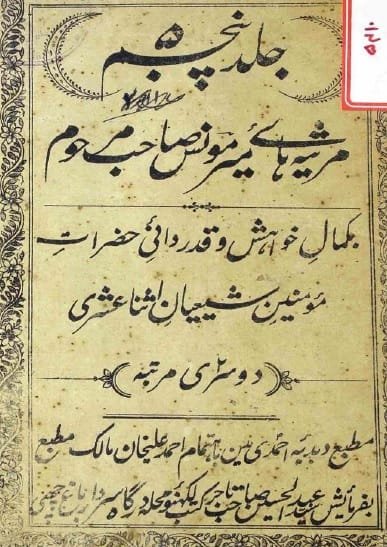 جلد پنجم
۵
مرثیہ ہائے میر مونس صاحب مرحوم
بکمالِ خواہش و قدردانیٔ حضراتِ
مؤمنین شیعیان اثنا عشری
(دوسری ۲ مرتبہ)
مطبع دبدبۂ احمدی مین باہتمام احمد علیخان مالک مطبع
بفرمایش سید عبد الحسین صاحب تاجر کتب لکھنؤ محلہ درگاہ سردار باغ